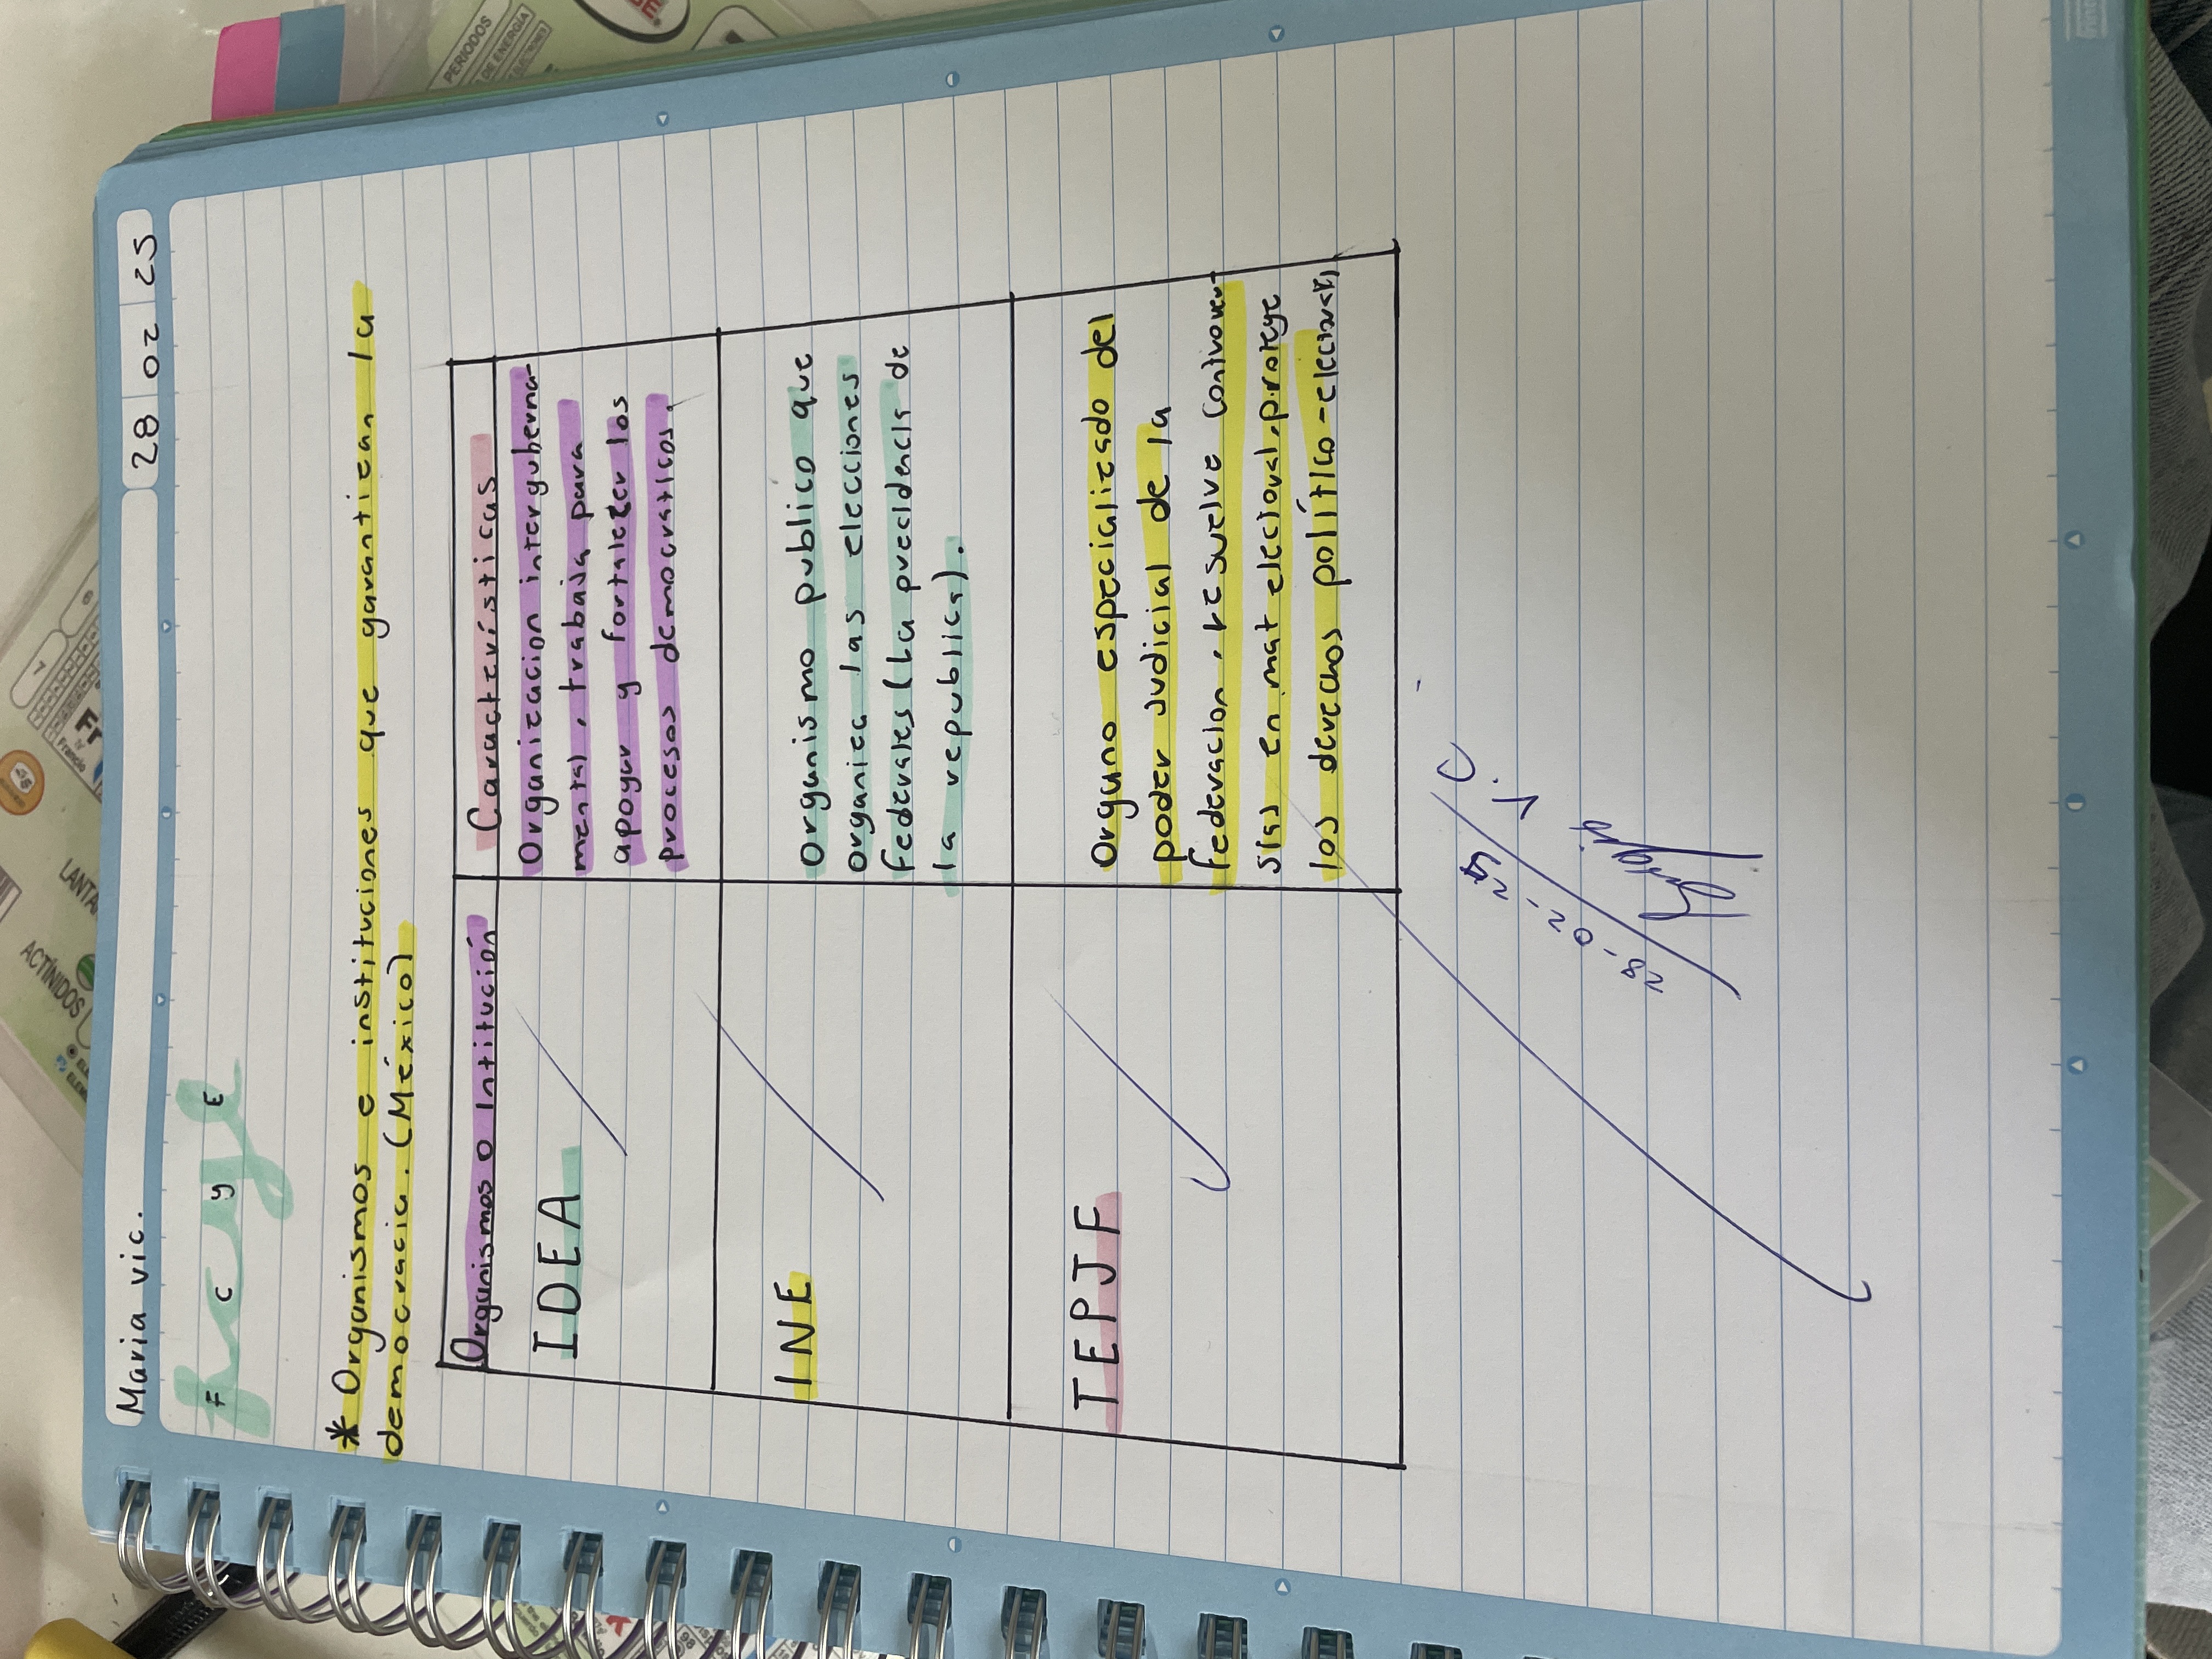 Maria vic.
28 02 25
F C y E
fcye
* Organismos e instituciones que garantizan la
democracia. (México)
Organismos o Intitución
Características
IDEA
Organizacion interguberna-
mental, trabaja para
apoyar y fortalecer los
procesos democraticos.
INE
Organismo publico que
organiza las elecciones
federales (La precidencia de
la republica).
TEPJF
Organo especializado del
poder judicial de la
federacion, resuelve controver-
sias en mat electoral, protege
los derechos político-electorales
V.
28-02-25
PERIODOS
DE ENERGÍA
LANTA
ACTÍNIDOS
Fr
Francio
7
98